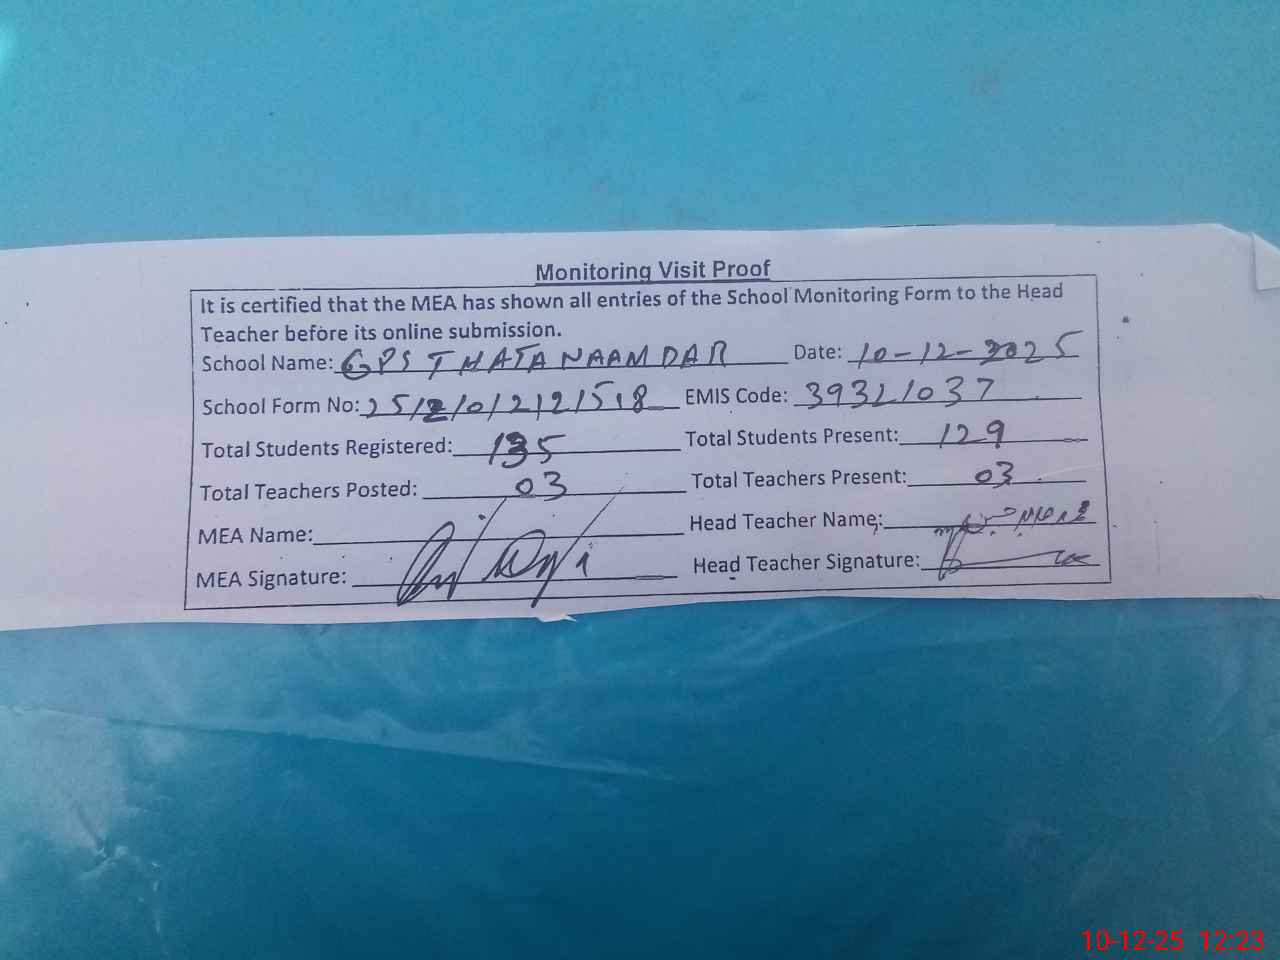 Monitoring Visit Proof
It is certified that the MEA has shown all entries of the School Monitoring Form to the Head
Teacher before its online submission.
School Name: GPS THATA NAAMDAR Date: 10-12-2025
School Form No: 25/2/0/2121518 EMIS Code: 39321037
Total Students Registered: 135 Total Students Present: 129
Total Teachers Posted: 03 Total Teachers Present: 03
MEA Name: Head Teacher Name:
MEA Signature: Head Teacher Signature:
10-12-25 12:23